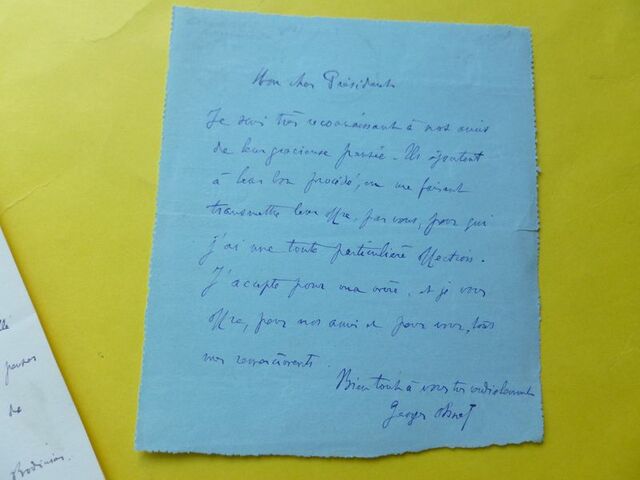 Mon cher Président
Je suis très reconnaissant à nos amis
de leur gracieuse pensée. Ils ajoutent
à leur bon procédé, en me faisant
transmettre leur offre, par vous, pour qui
j'ai une toute particulière affection.
J'accepte pour ma et je vous
offre, pour nos amis et pour vous, tous
mes remerciements
Bien tout à vous très cordialement
Georges Ohnet
lé
pauvres
de
Bodinier.